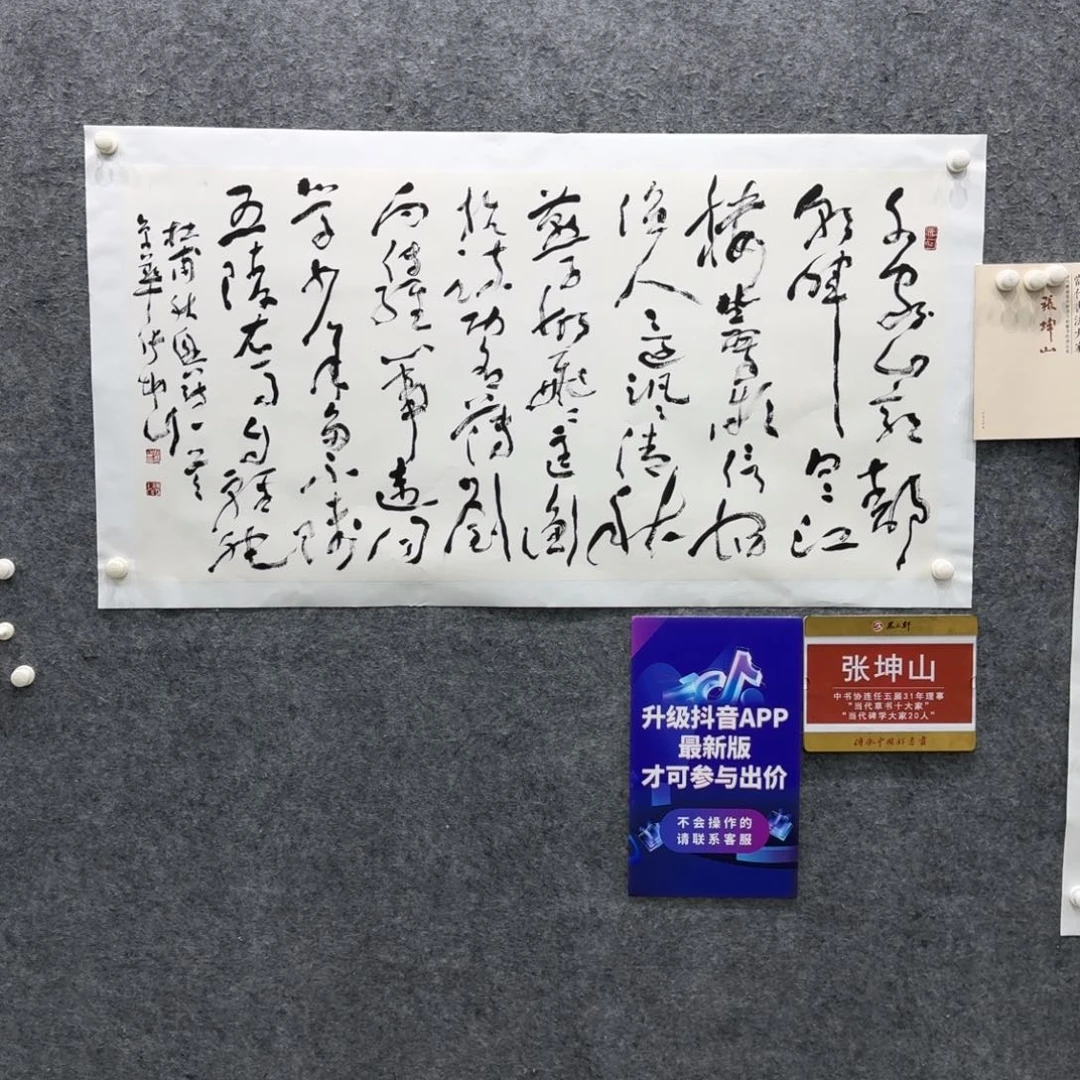 千家山郭静
朝暉日〻江
樓坐翠微信宿
漁人還汎〻清秋
燕子故飛〻匡衡
抗疏功名薄劉
向傳經心事違同
學少年多不賤
五陵衣馬自輕肥
杜甫秋興詩一首
京華張坤山
張坤山
升级抖音APP
最新版
才可参与出价
不会操作的
请联系客服
张坤山
中书协连任五届31年理事
“当代草书十大家”
“当代碑学大家20人”